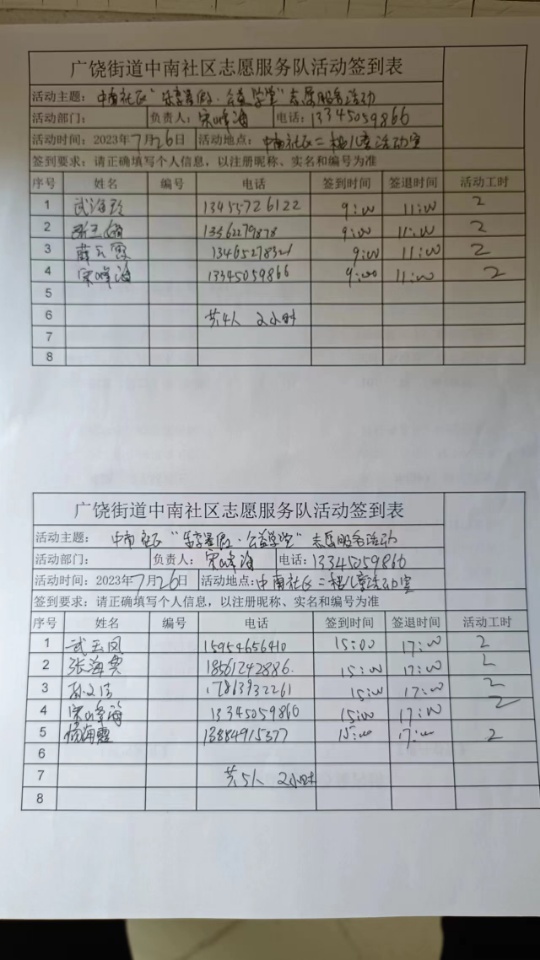 广饶街道中南社区志愿服务队活动签到表
活动主题： 中南社区“乐享暑假·公益学堂”志愿服务活动
活动部门： 负责人：宋峰海 电话：13345059866
活动时间：2023年7月26日 活动地点：中南社区二楼儿童活动室
签到要求：请正确填写个人信息，以注册昵称、实名和编号为准
序号 姓名 编号 电话 签到时间 签退时间 活动工时
1 武海 13455726122 9:00 11:00 2
2 13562279878 9:00 11:00 2
3 薛 13465278321 9:00 11:00 2
4 宋峰海 13345059866 9:00 11:00 2
5
6 共4人 2小时
7
8
广饶街道中南社区志愿服务队活动签到表
活动主题： 中南社区“乐享暑假·公益学堂”志愿服务活动
活动部门： 负责人：宋峰海 电话：13345059866
活动时间：2023年7月26日 活动地点：中南社区二楼儿童活动室
签到要求：请正确填写个人信息，以注册昵称、实名和编号为准
序号 姓名 编号 电话 签到时间 签退时间 活动工时
1 武玉凤 15954656410 15:00 17:00 2
2 张海英 18561242886 15:00 17:00 2
3 孙 17863932261 15:00 17:00 2
4 宋峰海 13345059860 15:00 17:00 2
5 杨海霞 13884915377 15:00 17:00 2
6
7 共5人 2小时
8